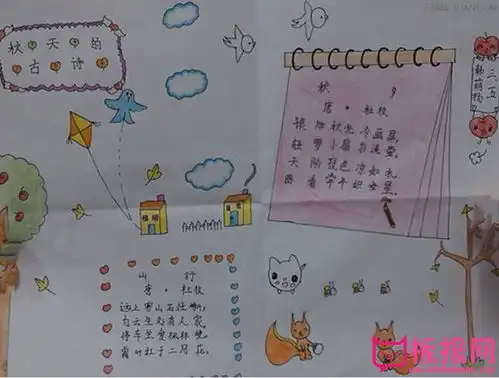 秋天的
古诗
秋 夕
唐·杜牧
银烛秋光冷画屏,
轻罗小扇扑流萤。
天阶夜色凉如水,
看牵牛织女星。
三、五
韩萌杨
山 行
唐·杜牧
远上寒山石径斜,
白云生处有人家,
停车坐爱枫林晚,
霜叶红于二月花。